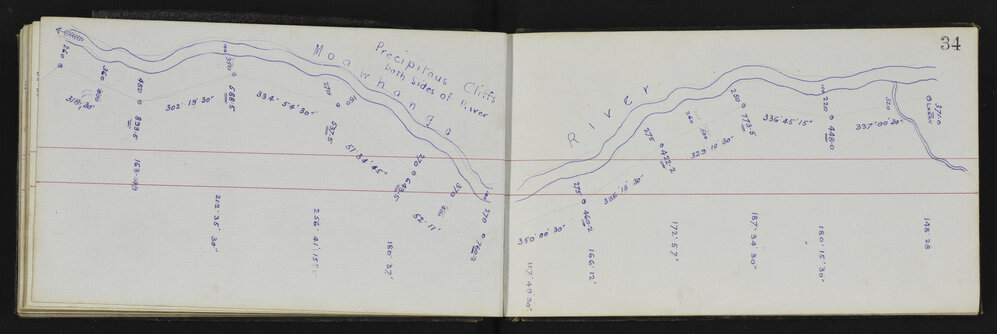 34
Precipitous Cliffs
both sides of River
Moawhango
River
260
360
318° 30"
480
898.5
302° 19' 30"
588.5
334° 54' 30"
170
150
537.5
51° 34' 45"
270
643.5
370
52° 11'
270
168° 49
212° 35' 30"
256° 41' 15"
180° 37'
350° 00' 30"
275
460.2
275
472.2
329° 19' 30"
250
773.5
336° 45' 15"
220
448.0
337° 00' 30"
320
371.0
117° 49' 30"
166° 12'
172° 57'
187° 34' 30"
180° 15' 30"
148° 28